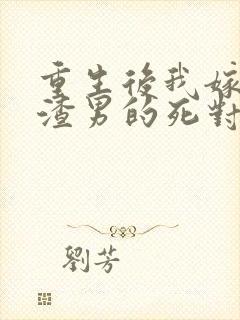 重生後我嫁
渣男的死對
劉芳